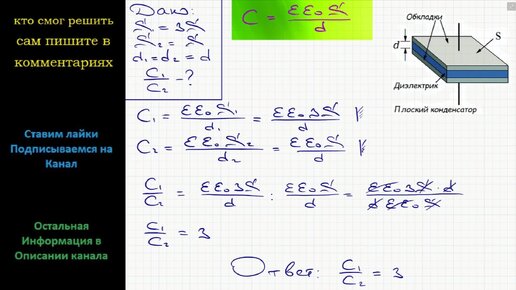 кто смог решить
сам пишите в
комментариях
Ставим лайки
Подписываемся на
Канал
Остальная
Информация в
Описании канала
Дано:
S₁ = 3S
S₂ = S
d₁ = d₂ = d
C₁/C₂ - ?
C = εε₀S/d
Обкладки
d
S
Диэлектрик
Плоский конденсатор
C₁ = εε₀S₁/d₁ = εε₀3S/d
C₂ = εε₀S₂/d₂ = εε₀S/d
C₁/C₂ = εε₀3S/d : εε₀S/d = εε₀3S·d/dεε₀S
C₁/C₂ = 3
Ответ: C₁/C₂ = 3